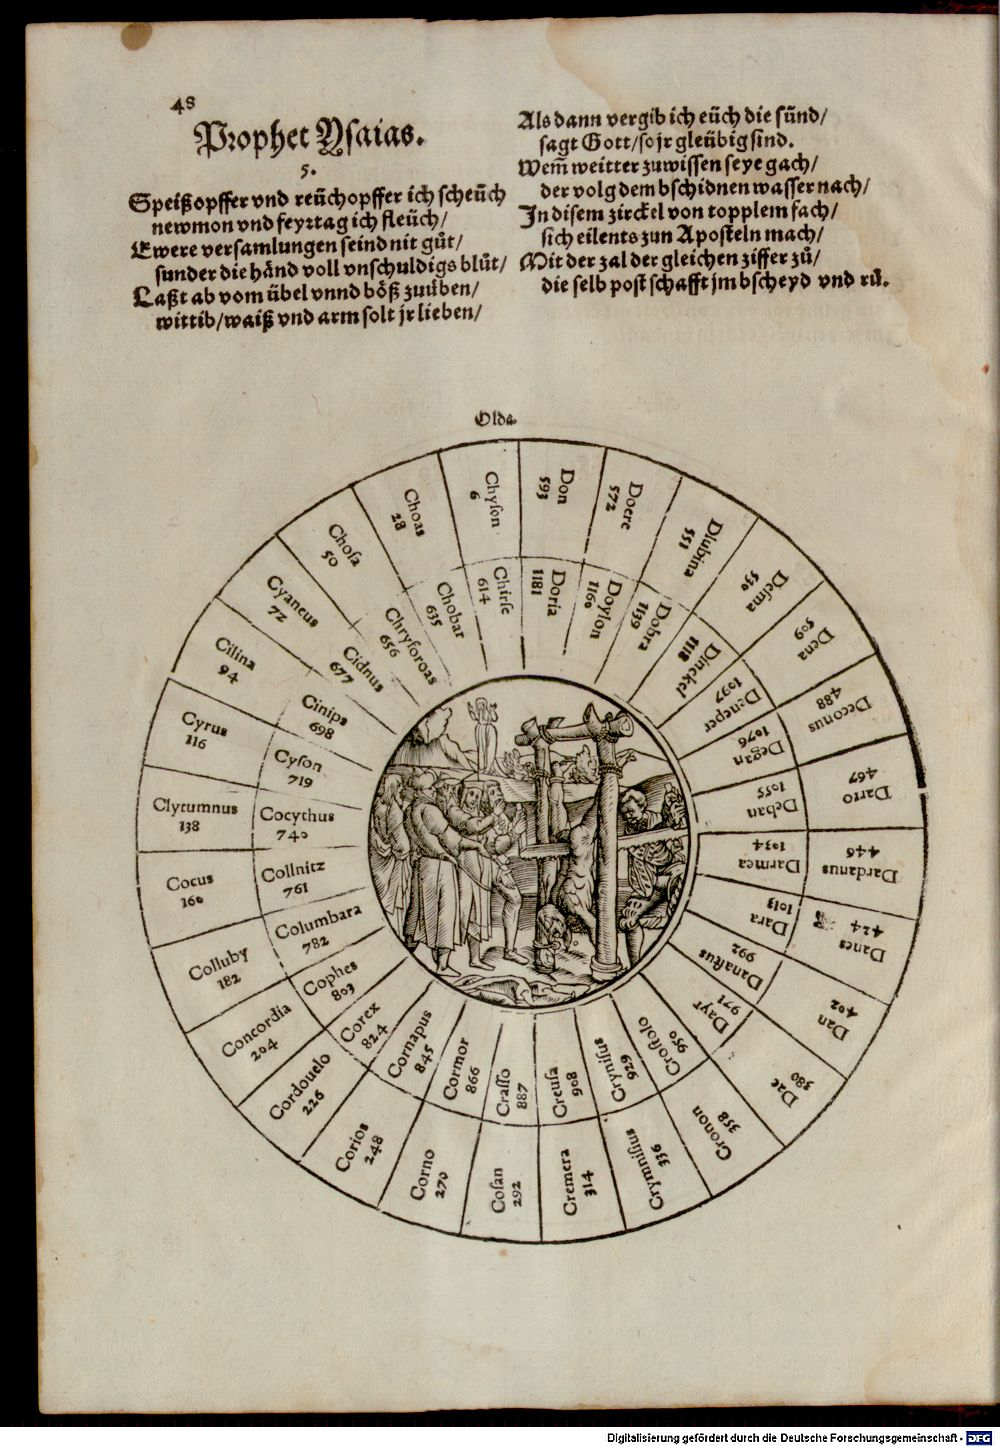 48
Prophet Ysaias.
5.
Speiß opffer vnd reüchopffer ich scheüch
newmon vnd feyrtag ich fleüch/
Ewere versamlungen seind nit gůt/
sunder die händ voll vnschuldigs blůt/
Laßt ab vom übel vnnd böß zuüben/
wittib/waiß vnd arm solt jr lieben/
Als dann vergib ich eüch die sünd/
sagt Gott/so jr gleübig sind.
Wem̃ weitter zuwissen seye gach/
der volg dem bschidnen wasser nach/
In disem zirckel von topplem fach/
sich eilents zun Aposteln mach/
Mit der zal der gleichen ziffer zů/
die selb post schafft jm bscheyd vnd rů.
Olda.
Don
593
Doere
572
Dlubina
551
Desma
530
Dena
509
Deconus
488
Darro
467
Dardanus
446
Danes
424
Dan
402
Dae
380
Cronon
358
Crymnisus
336
Cremera
314
Cosan
292
Corno
270
Corios
248
Cordouelo
226
Concordia
204
Colluby
182
Cocus
160
Clytumnus
138
Cyrus
116
Cilina
94
Cyaneus
72
Chosa
50
Choas
28
Chyson
6
Doria
1181
Doylon
1160
Dobra
1139
Dinckel
1118
Dzneper
1097
Degan
1076
Deban
1055
Darmea
1034
Dara
1013
Danastus
992
Dayr
971
Crostolo
950
Crynisus
929
Creusa
908
Crasso
887
Cormor
866
Cornapus
845
Corex
824
Cophes
803
Columbara
782
Collnitz
761
Cocythus
740
Cyson
719
Cinips
698
Cidnus
677
Chrysoroas
656
Chobar
635
Chirse
614
Digitalisierung gefördert durch die Deutsche Forschungsgemeinschaft - DFG